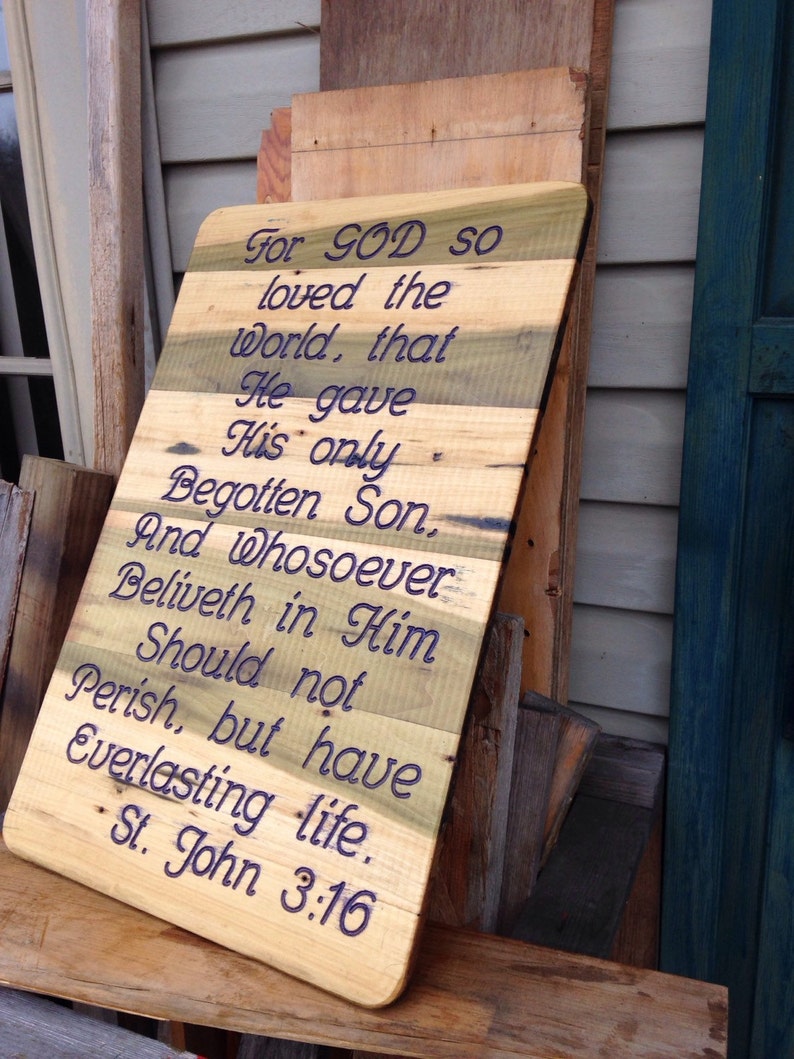 For GOD so
loved the
World, that
He gave
His only
Begotten Son,
And Whosoever
Beliveth in Him
Should not
Perish, but have
Everlasting life.
St. John 3:16